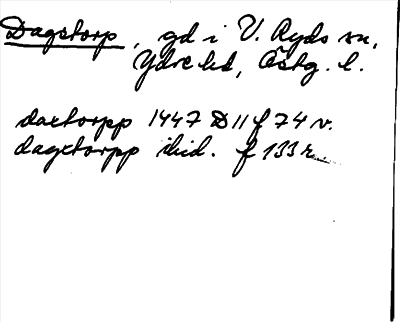 Dagstorp, gd i V. Ryds sn,
Ydre hd, Östg. l.
daxtorpp 1447 D 11 f 74 v.
dagxtorpp ibid. f 133 r.